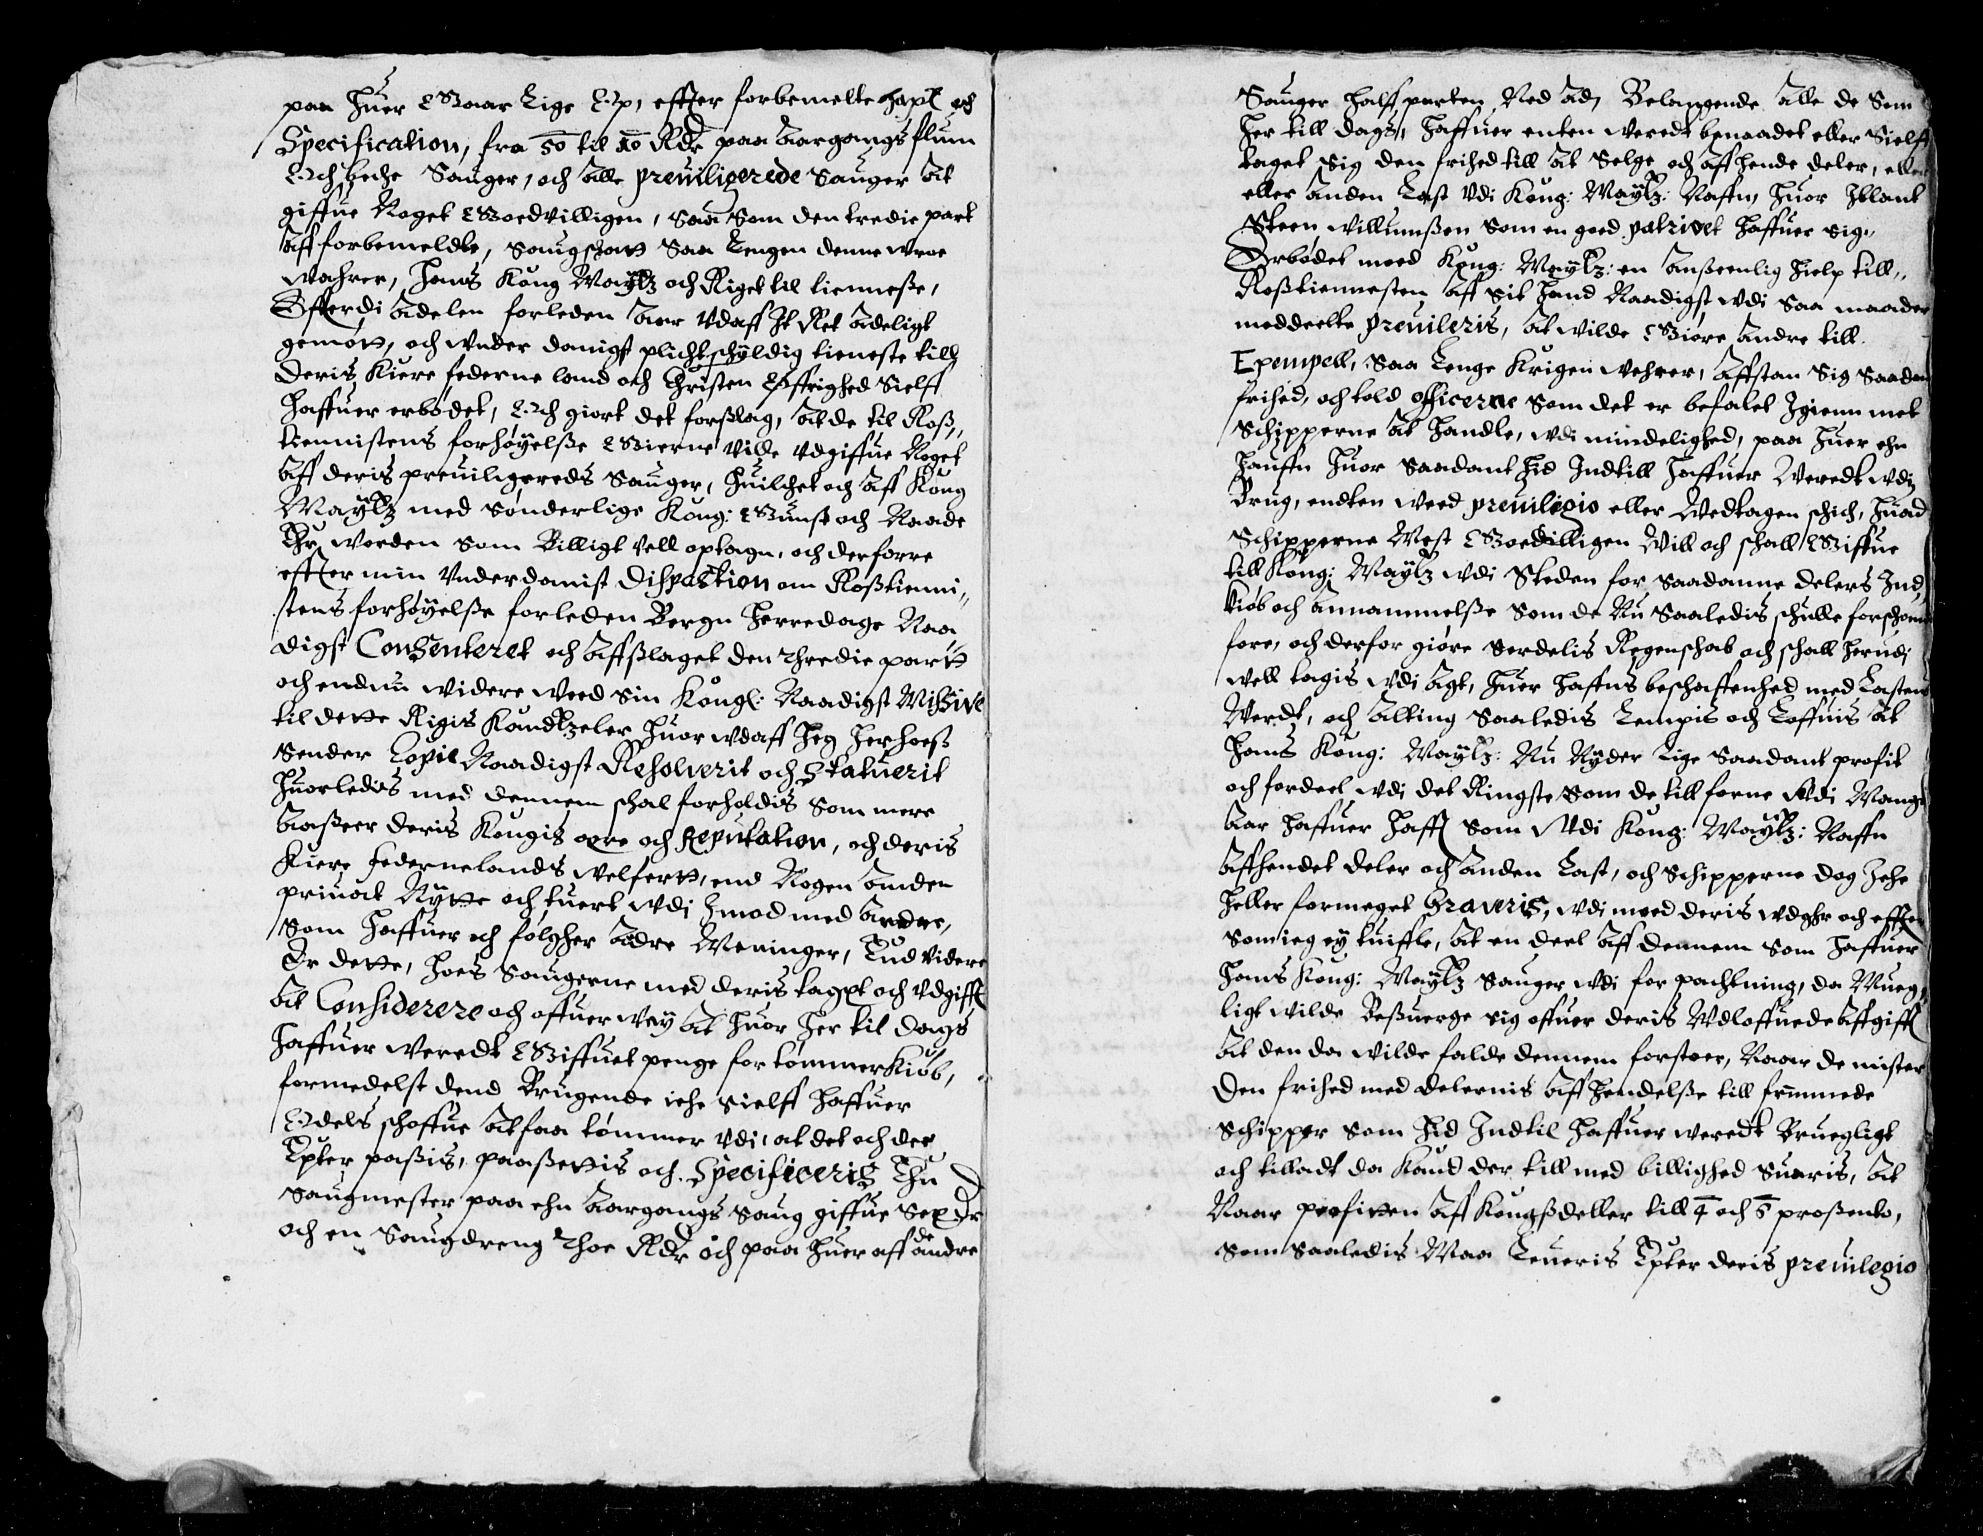 paa huer Gaar Lige Op, effter forbemelte tapt och
Specification, fra 50 til 10 Rdr paa aargangs flum
Och beche Sauger, och alle preuiligerede Sauger at
giffue Noget Goedvilligen, saa som den tredie part
aff forbemeldte, saugschatt saa Lengen denne wroe
wahrer, hans Kong Maytz och Riget til tienneste,
Efterdi adelen forleden aar vdaff It Ret adeligt
gemøtt, och wnder danigst plichtschyldig tieneste till
deris kiere federne land och Christen Øffrighed sielff
haffuer erbødet, Och giort det forslag, at de til Roß,,
tiennistens forhøyelße Gierne vilde vdgiffue Noget
aff deris preuiligereds Sauger, huilchet och aff Kong
Maytz med sønderlige Kong: Gunst och Naade
Ehr worden som Billigt vell optagn, och derforre
effter min vnderdanist Disposition om Roßtienni,,
stens forhøyelße forleden Bergn herredage Naa
digst Consenteret och affslaget den thredie part
och endnu widere weed sin Kongl: Naadigst Missive
til dette Rigis Kandtzeler huor wdaff Jeg herhoes
sender Copie Naadigst Resolverit och Statuerit
huorledis med dennem schal forholdis som mere
anßeer deris Kongis ære och Reputation, och deris
kiere federnelands welfert, end Nogen anden
priuat Nytte och tuert wdi Imod med andre,
som haffuer och følgher andre Meninger, End videre
Er dette, hoes Saugerne med deris tagxt och vdgifft
at Considerere och offuerwey at huor her til dags
haffuer weredt Giffuet penge for tømmerkiøb,
formedelst dend Brugende iche sielff haffuer
Odels schoffue at faa tømmer vdi, at det och der
Epter paßis, paaßettis och Specificeris Ehn
Saugmester paa ehn aargangs Saug giffue Sex Dr
och en Saugdreng thoe Rdr och paa huer aff de andre
Sauger halff parten Ned ad, Belangende alle de Som
her till dags, haffuer enten weredt benaadet eller Sielff
taget sig den frihed till at Selge och affhende deler, eller
eller anden Last vdi Kong: Maytz: Naffn, huor Iblant
Steen willumßen som en goed patriot haffuer sig,,
Erbødet med Kong: Maytz: en anßeenlig hielp till,,
Roßtiennesten aff sit hand Naadigst wdi saa maader
meddeelte preuileris, at wilde Giøre andre till
Exempell, Saa Lenge Krigen wehrer, affstan Sig Saadan
frihed, och told officerne som det er befalet Igienn met
Schipperne at handle, wdi mindelighed, paa huer ehn
hauffn huor saadant hid Indtill haffuer Weredt wdi
Brug, endten weed preuilegio eller Wedtagen schich, huad
Schipperne Mest Goedvilligen Will och schall Giffue
till Kong: Maytz wdi steden for saadanne delers Ind,,
kiøb och annammelße som de Nu saaledis schulle forschaan
fore, och derfor giøre serdelis Regenschab och schall herudi
well tagis wdi agt, huer haffns beschaffenhed med Lastens
Verdt, och alting saaledis Lempis och Løffuis at
hans Kong: Maytz: Nu Nyder Lige saadant profit
och fordeel wdi det Ringste som de till forne wdi Mange
aar haffuer hafft som wdi Kong: Maytz: Naffn
affhendet deler och anden Last, och Schipperne dog Iche
heller formeget Graveris, wdi med deris wdgifft och effter
som ieg ey tuiffle, at en deel aff dennem som haffuer
hans Kong: Maytz Sauger wdi for pachtning, da Mueg,,
ligt wilde Beßuerge sig offuer deris Wdloffuede affgifft
at den da wilde falde dennem forstoer, Naar de mister
den frihed med delernis affhendelße till fremmede
Schipper som hid Indtil haffuer weredt Bruegligt
och tilladt da kand der till med billighed Suaris, at
Naar profitten aff Kongßdeller till 4 och 5 proßento,
som saaledis Maa Leueris Epter deris preuilegio